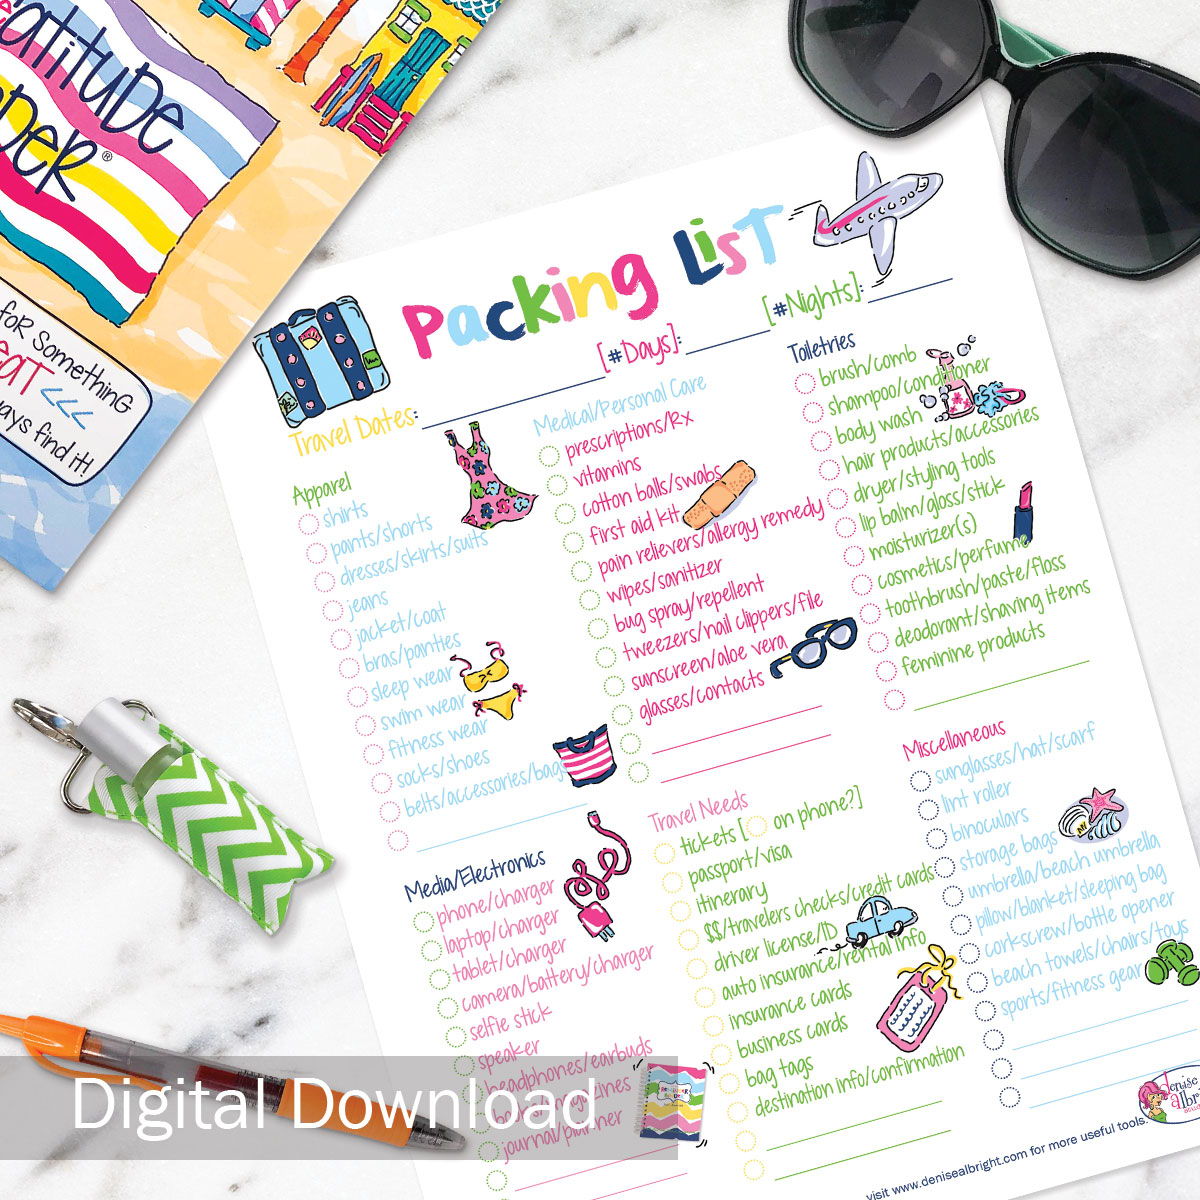 atitude
®
for something
eat <<<
ways find it!
Packing List
Travel Dates:
[#Days]:
[#Nights]:
Apparel
shirts
pants/shorts
dresses/skirts/suits
jeans
jacket/coat
bras/panties
sleep wear
swim wear
fitness wear
socks/shoes
belts/accessories/bags
Medical/Personal Care
prescriptions/Rx
vitamins
cotton balls/swabs
first aid kit
pain relievers/allergy remedy
wipes/sanitizer
bug spray/repellent
tweezers/nail clippers/file
sunscreen/aloe vera
glasses/contacts
Toiletries
brush/comb
shampoo/conditioner
body wash
hair products/accessories
dryer/styling tools
lip balm/gloss/stick
moisturizer(s)
cosmetics/perfume
toothbrush/paste/floss
deodorant/shaving items
feminine products
Media/Electronics
phone/charger
laptop/charger
tablet/charger
camera/battery/charger
selfie stick
speaker
headphones/earbuds
journal/planner
Travel Needs
tickets [ on phone?]
passport/visa
itinerary
$$/travelers checks/credit cards
driver license/ID
auto insurance/rental info
insurance cards
business cards
bag tags
destination info/confirmation
Miscellaneous
sunglasses/hat/scarf
lint roller
binoculars
storage bags
umbrella/beach umbrella
pillow/blanket/sleeping bag
corkscrew/bottle opener
beach towels/chairs/toys
sports/fitness gear
visit www.denisealbright.com for more useful tools.
denise
albri
Digital Download